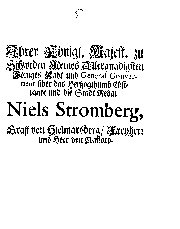 Ihrer Königl. Majest. zu
Schweden Meines Allergnädigsten
Königes Raht und General Gouver-
neur über das Hertzogthumb Ehst-
land und die Stadt Reval
Niels Stromberg,
Graff von Hielmarberg/ Freyherr
und Herr von